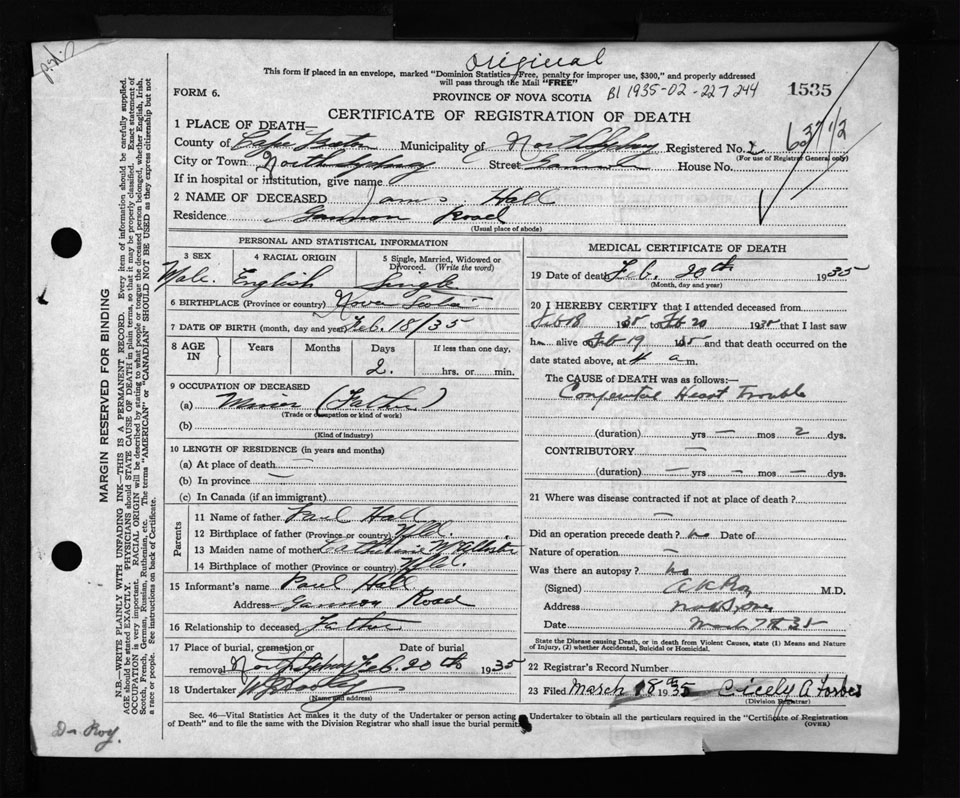 original
This form if placed in an envelope, marked "Dominion Statistics-Free, penalty for improper use, $300," and properly addressed
will pass through the Mail "FREE"
FORM 6.
PROVINCE OF NOVA SCOTIA
B1 1935-02-227244
1535
CERTIFICATE OF REGISTRATION OF DEATH
1 PLACE OF DEATH—
County of Cape Breton Municipality of North Sydney Registered No.
637 1/2
(For use of Registrar General only)
City or Town North Sydney Street House No.
If in hospital or institution, give name
2 NAME OF DECEASED James Hall
Residence Gannon Road
(Usual place of abode)
PERSONAL AND STATISTICAL INFORMATION
3 SEX 4 RACIAL ORIGIN 5 Single, Married, Widowed or Divorced. (Write the word)
Male English Single
6 BIRTHPLACE (Province or country) Nova Scotia
7 DATE OF BIRTH (month, day and year) Feb. 18/35
8 AGE IN Years Months Days If less than one day,
2. hrs. or min.
9 OCCUPATION OF DECEASED
(a) Miner (Father)
(Trade or occupation or kind of work)
(b)
(Kind of industry)
10 LENGTH OF RESIDENCE (in years and months)
(a) At place of death —
(b) In province —
(c) In Canada (if an immigrant)
Parents
11 Name of father Paul Hall
12 Birthplace of father (Province or country) Nfld.
13 Maiden name of mother Catherine
14 Birthplace of mother (Province or country) Nfld.
15 Informant's name Paul Hall
Address Gannon Road
16 Relationship to deceased Father
17 Place of burial, cremation or removal Date of burial
North Sydney Feb. 20th 1935
18 Undertaker
(Name and address)
MEDICAL CERTIFICATE OF DEATH
19 Date of death Feb. 20th 1935
(Month, day and year)
20 I HEREBY CERTIFY that I attended deceased from
Feb 18 1935 to Feb 20 1935 that I last saw
h alive on Feb 19 1935 and that death occurred on the
date stated above, at 4 a m.
The CAUSE of DEATH was as follows:—
Congenital Heart Trouble
(duration) yrs — mos 2 dys.
CONTRIBUTORY —
(duration) — yrs — mos — dys.
21 Where was disease contracted if not at place of death?
—
Did an operation precede death? no Date of
Nature of operation —
Was there an autopsy? no
(Signed) M.D.
Address
Date March 7th 35
State the Disease causing Death, or in death from Violent Causes, state (1) Means and Nature
of Injury, (2) whether Accidental, Suicidal or Homicidal.
22 Registrar's Record Number
23 Filed March 18th 1935 Cicely A. Forbes
(Division Registrar)
Sec. 46—Vital Statistics Act makes it the duty of the Undertaker or person acting as Undertaker to obtain all the particulars required in the "Certificate of Registration
of Death" and to file the same with the Division Registrar who shall issue the burial permit.
(OVER)
MARGIN RESERVED FOR BINDING
N.B.—WRITE PLAINLY WITH UNFADING INK—THIS IS A PERMANENT RECORD. Every item of information should be carefully supplied.
AGE should be stated EXACTLY. PHYSICIANS should STATE CAUSE OF DEATH in plain terms, so that it may be properly classified. Exact statement of
OCCUPATION is very important. RACIAL ORIGIN will be described by stating to what people or tongue the deceased person belonged, whether English, Irish,
Scotch, French, German, Russian, Ruthenian, etc. The terms "AMERICAN" or "CANADIAN" SHOULD NOT BE USED as they express citizenship but not
a race or people. See instructions on back of Certificate.
Dr Roy.